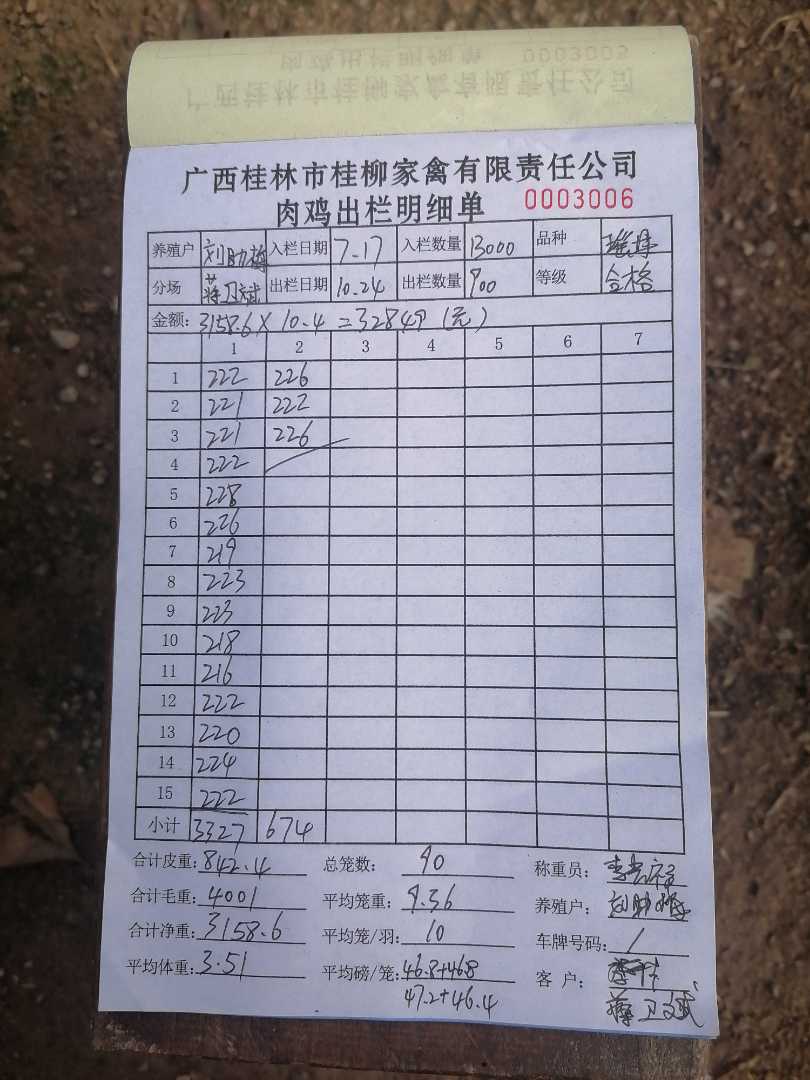 肉鸡出栏明细单 0003005
广西桂林市桂柳家禽有限责任公司
广西桂林市桂柳家禽有限责任公司
肉鸡出栏明细单 0003006
养殖户 刘助 入栏日期 7.17 入栏数量 13000 品种
分场 蒋卫斌 出栏日期 10.24 出栏数量 900 等级 合格
金额: 3158.6 × 10.4 = 32849 (元)
1 2 3 4 5 6 7
1 222 226
2 221 222
3 221 226
4 222
5 228
6 226
7 219
8 223
9 223
10 218
11 216
12 222
13 220
14 224
15 222
小计 3327 674
合计皮重: 842.4 总笼数: 90 称重员:
合计毛重: 4001 平均笼重: 9.36 养殖户: 刘助
合计净重: 3158.6 平均笼/羽: 10 车牌号码: /
平均体重: 3.51 平均磅/笼: 46.8+46.8 客户:
47.2+46.4 蒋卫斌